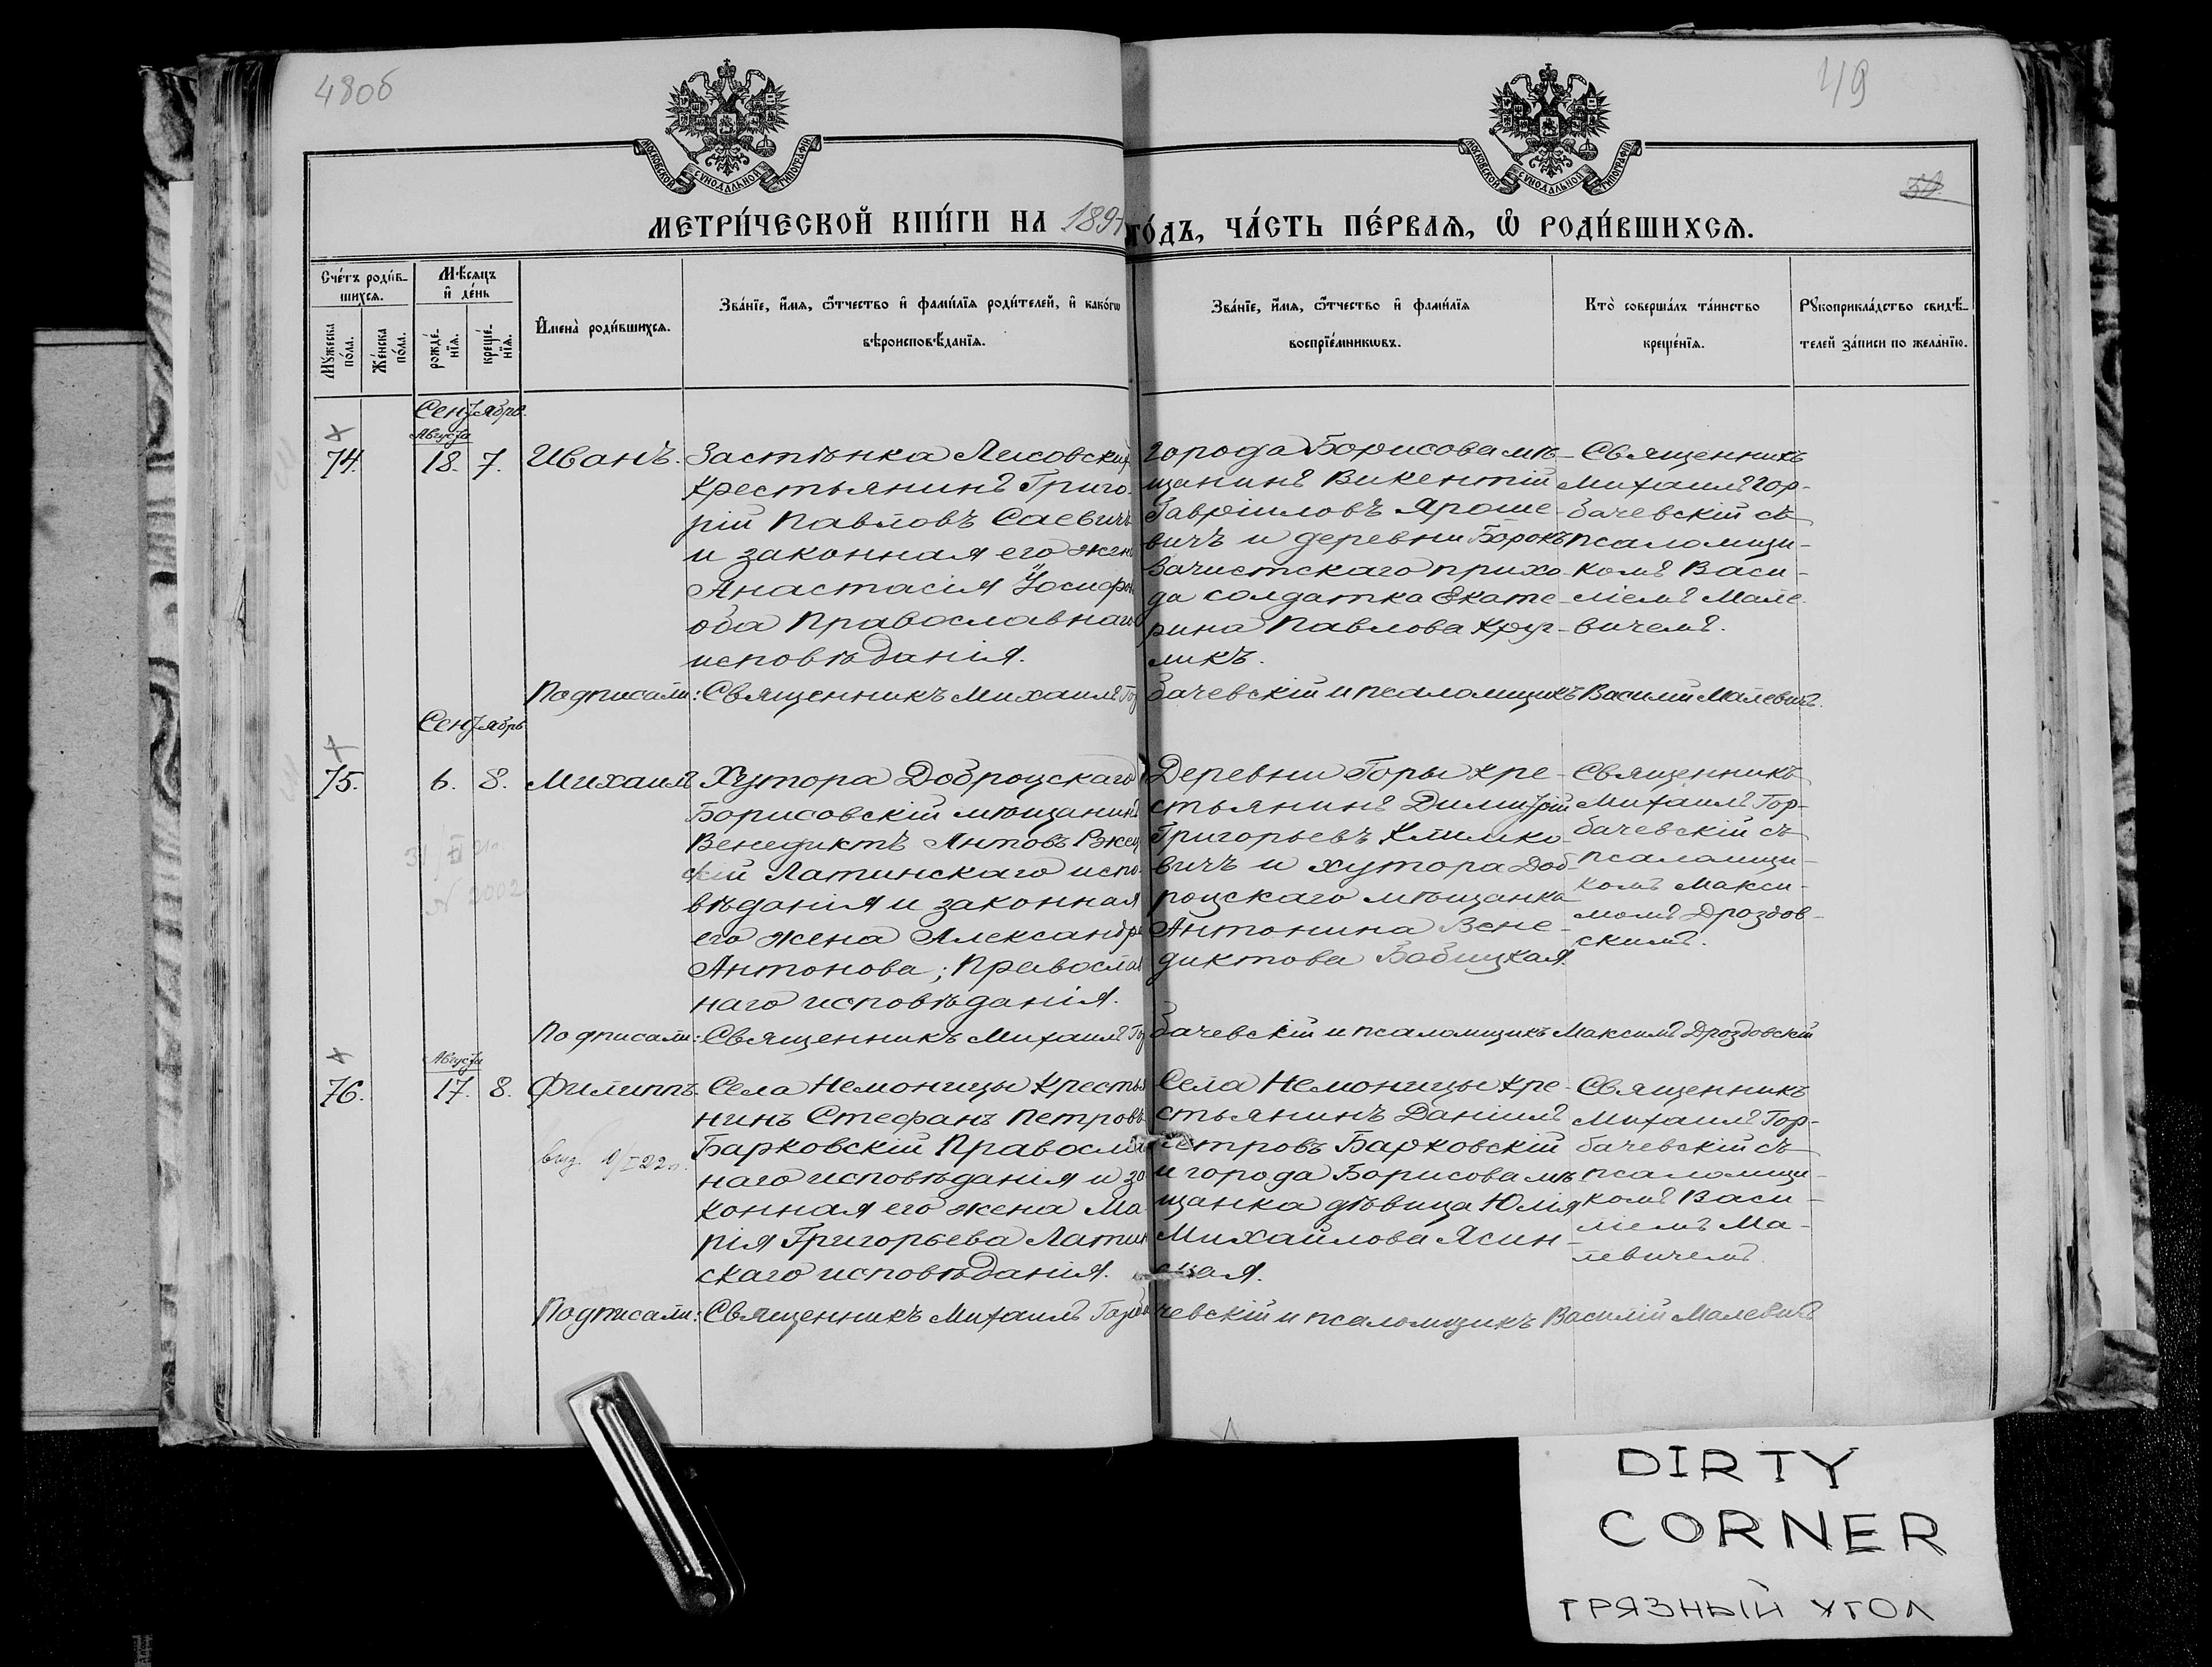 48об
49
МОСКОВСКОЙ СѴНОДАЛЬНОЙ ТИПОГРАФІИ
МОСКОВСКОЙ СѴНОДАЛЬНОЙ ТИПОГРАФІИ
МЕТРИ́ЧЕСКОЙ КНИ́ГИ НА 189
ГО́ДЪ, ЧА́СТЬ ПЕ́РВАѦ, Ѡ҆ РОДИ́ВШИХСѦ.
Сче́тъ роди́в-
шихсѧ.
Мꙋ́жеска по́ла.
Же́нска по́ла.
Мѣ́сѧцъ
и҆ де́нь
рожде́-
нїѧ.
креще́-
нїѧ.
И҆мена̀ роди́вшихсѧ.
Зва́нїе, и҆́мѧ, ѻ҆́тчество и҆ фами́лїѧ роди́телей, и҆ како́гѡ
вѣроисповѣ́данїѧ.
Зва́нїе, и҆́мѧ, ѻ҆́тчество и҆ фами́лїѧ
воспрїе́мникѡвъ.
Кто̀ соверша́лъ та́инство
креще́нїѧ.
Рꙋкоприкла́дство свидѣ́-
телей за́писи по жела́нїю.
Сентябрь.
Августа
74. 18. 7. Иванъ.
Застѣнка Лисовскихъ
крестьянинъ Григо-
рій Павловъ Саевичъ
и законная его жена
Анастасія Іосифо
ова Православнаго
исповѣданія.
города Борисова мѣ-
щанинъ Викентій
Гавріиловъ Яроше-
вичъ и деревни Борокъ
Зачистскаго прихо-
да солдатка Екате-
рина Павлова Круг-
ликъ.
Священникъ
Михаилъ Гор-
бачевскій съ
псаломщи-
комъ Васи-
ліемъ Мале-
вичемъ.
Подписали: Священникъ Михаилъ Горбачевскій и псаломщикъ Василій Малевичъ.
Сентябрь
75. 6. 8. Михаилъ
Хутора Доброцскаго
Борисовскій мѣщанинъ
Венедиктъ Антовъ
скій Латинскаго испо-
вѣданія и законная
его жена Александра
Антонова; Православ
наго исповѣданія.
Деревни Горы кре-
стьянинъ Димитрій
Григорьевъ Климко-
вичъ и хутора Доб-
роцскаго мѣщанка
Антонина Вене-
диктова Бобицкая.
Священникъ
Михаилъ Гор-
бачевскій съ
псаломщи-
комъ Макси-
момъ Дроздов-
скимъ.
N 2002
Подписали: Священникъ Михаилъ Горбачевскій и псаломщикъ Максимъ Дроздовскій
Августа
76. 17. 8. Филиппъ.
Села Немоницы кресть
нинъ Стефанъ Петровъ
Барковскій Православ
наго исповѣданія и за
конная его жена Ма-
рія Григорьева Латин
скаго исповѣданія.
Села Немоницы кре-
стьянинъ Даніилъ
Петровъ Барковскій
и города Борисова мѣ
щанка дѣвица Юлія
Михайлова Ясин-
ская.
Священникъ
Михаилъ Гор-
бачевскій съ
псаломщи-
комъ Васи-
ліемъ Ма-
левичемъ
Подписали: Священникъ Михаилъ Горбачевскій и псаломщикъ Василій Малевичъ
DIRTY
CORNER
ГРЯЗНЫЙ УГОЛ